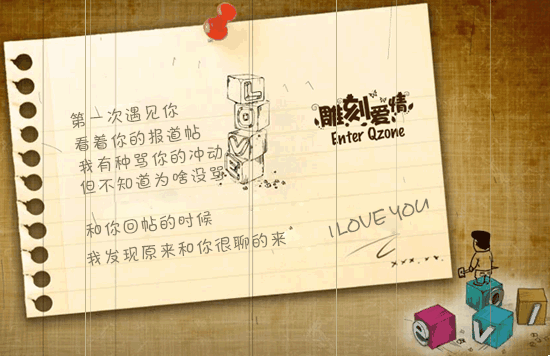 第一次遇见你
看着你的报道帖
我有种骂你的冲动
但不知道为啥没骂
和你回帖的时候
我发现原来和你很聊的来
L
O
V
E
雕刻爱情
Enter Qzone
I LOVE YOU
e
v
o
l